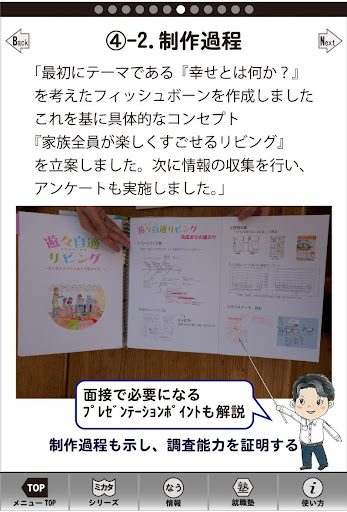 Back
④-2.制作過程
Next
「最初にテーマである『幸せとは何か?』
を考えたフィッシュボーンを作成しました
これを基に具体的なコンセプト
『家族全員が楽しくすごせるリビング』
を立案しました。次に情報の収集を行い、
アンケートも実施しました。」
遊々自適
リビング
遊々自適リビング
面接で必要になる
ﾌﾟﾚｾﾞﾝﾃｰｼｮﾝﾎﾟｲﾝﾄも解説
制作過程も示し、調査能力を証明する
TOP
メニューTOP
ミカタ
シリーズ
なう
情報
塾
就職塾
i
使い方